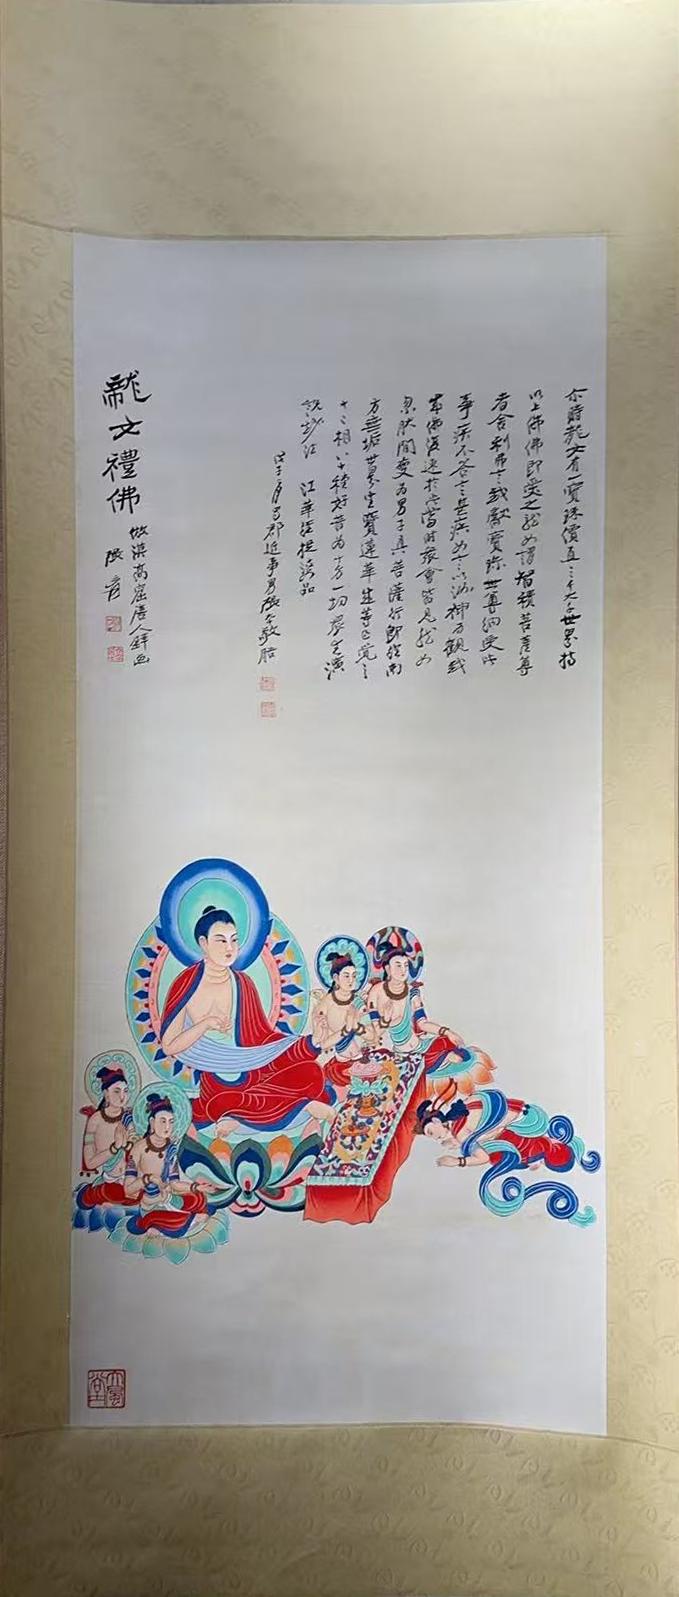 尒時龍女有一寶珠價直三千大千世界持
以上佛佛即受之龍女謂智積菩薩尊
者舍利弗言我獻寶珠世尊納受此
事疾不答言甚疾女言以汝神力觀我
成佛復速於此當時眾會皆見龍女
忽然間變為男子具菩薩行即往南
方無垢世界坐寶蓮華成等正覺三
十二相八十種好普為十方一切眾生演
說妙法 法華經提婆品
戊子月蜀郡近事男張大千敬
龍女禮佛
倣漠高窟唐人画
張爰
大風堂